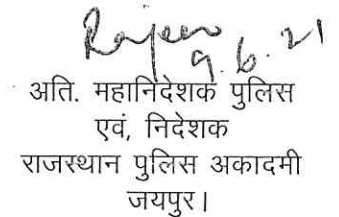 Rajeev
9.6.21
अति. महानिदेशक पुलिस
एवं, निदेशक
राजस्थान पुलिस अकादमी
जयपुर।